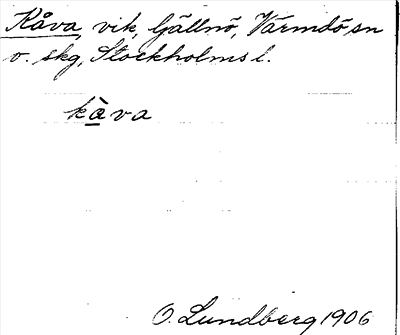 Kåva, vik, Gällnö, Värmdö sn
v. skg, Stockholms l.
kàva
O. Lundberg 1906